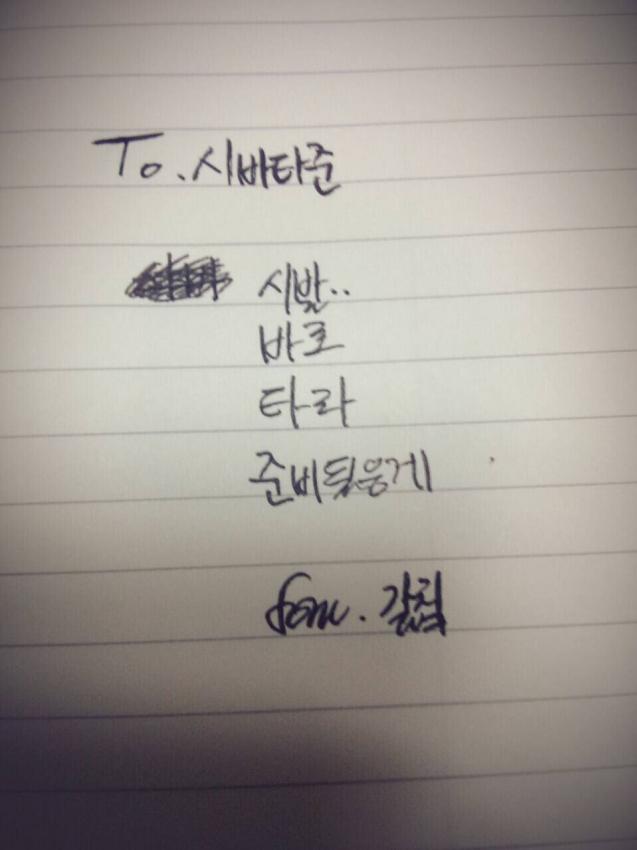 To. 시바타준
시발..
바로
타라
준비됬응게
from.